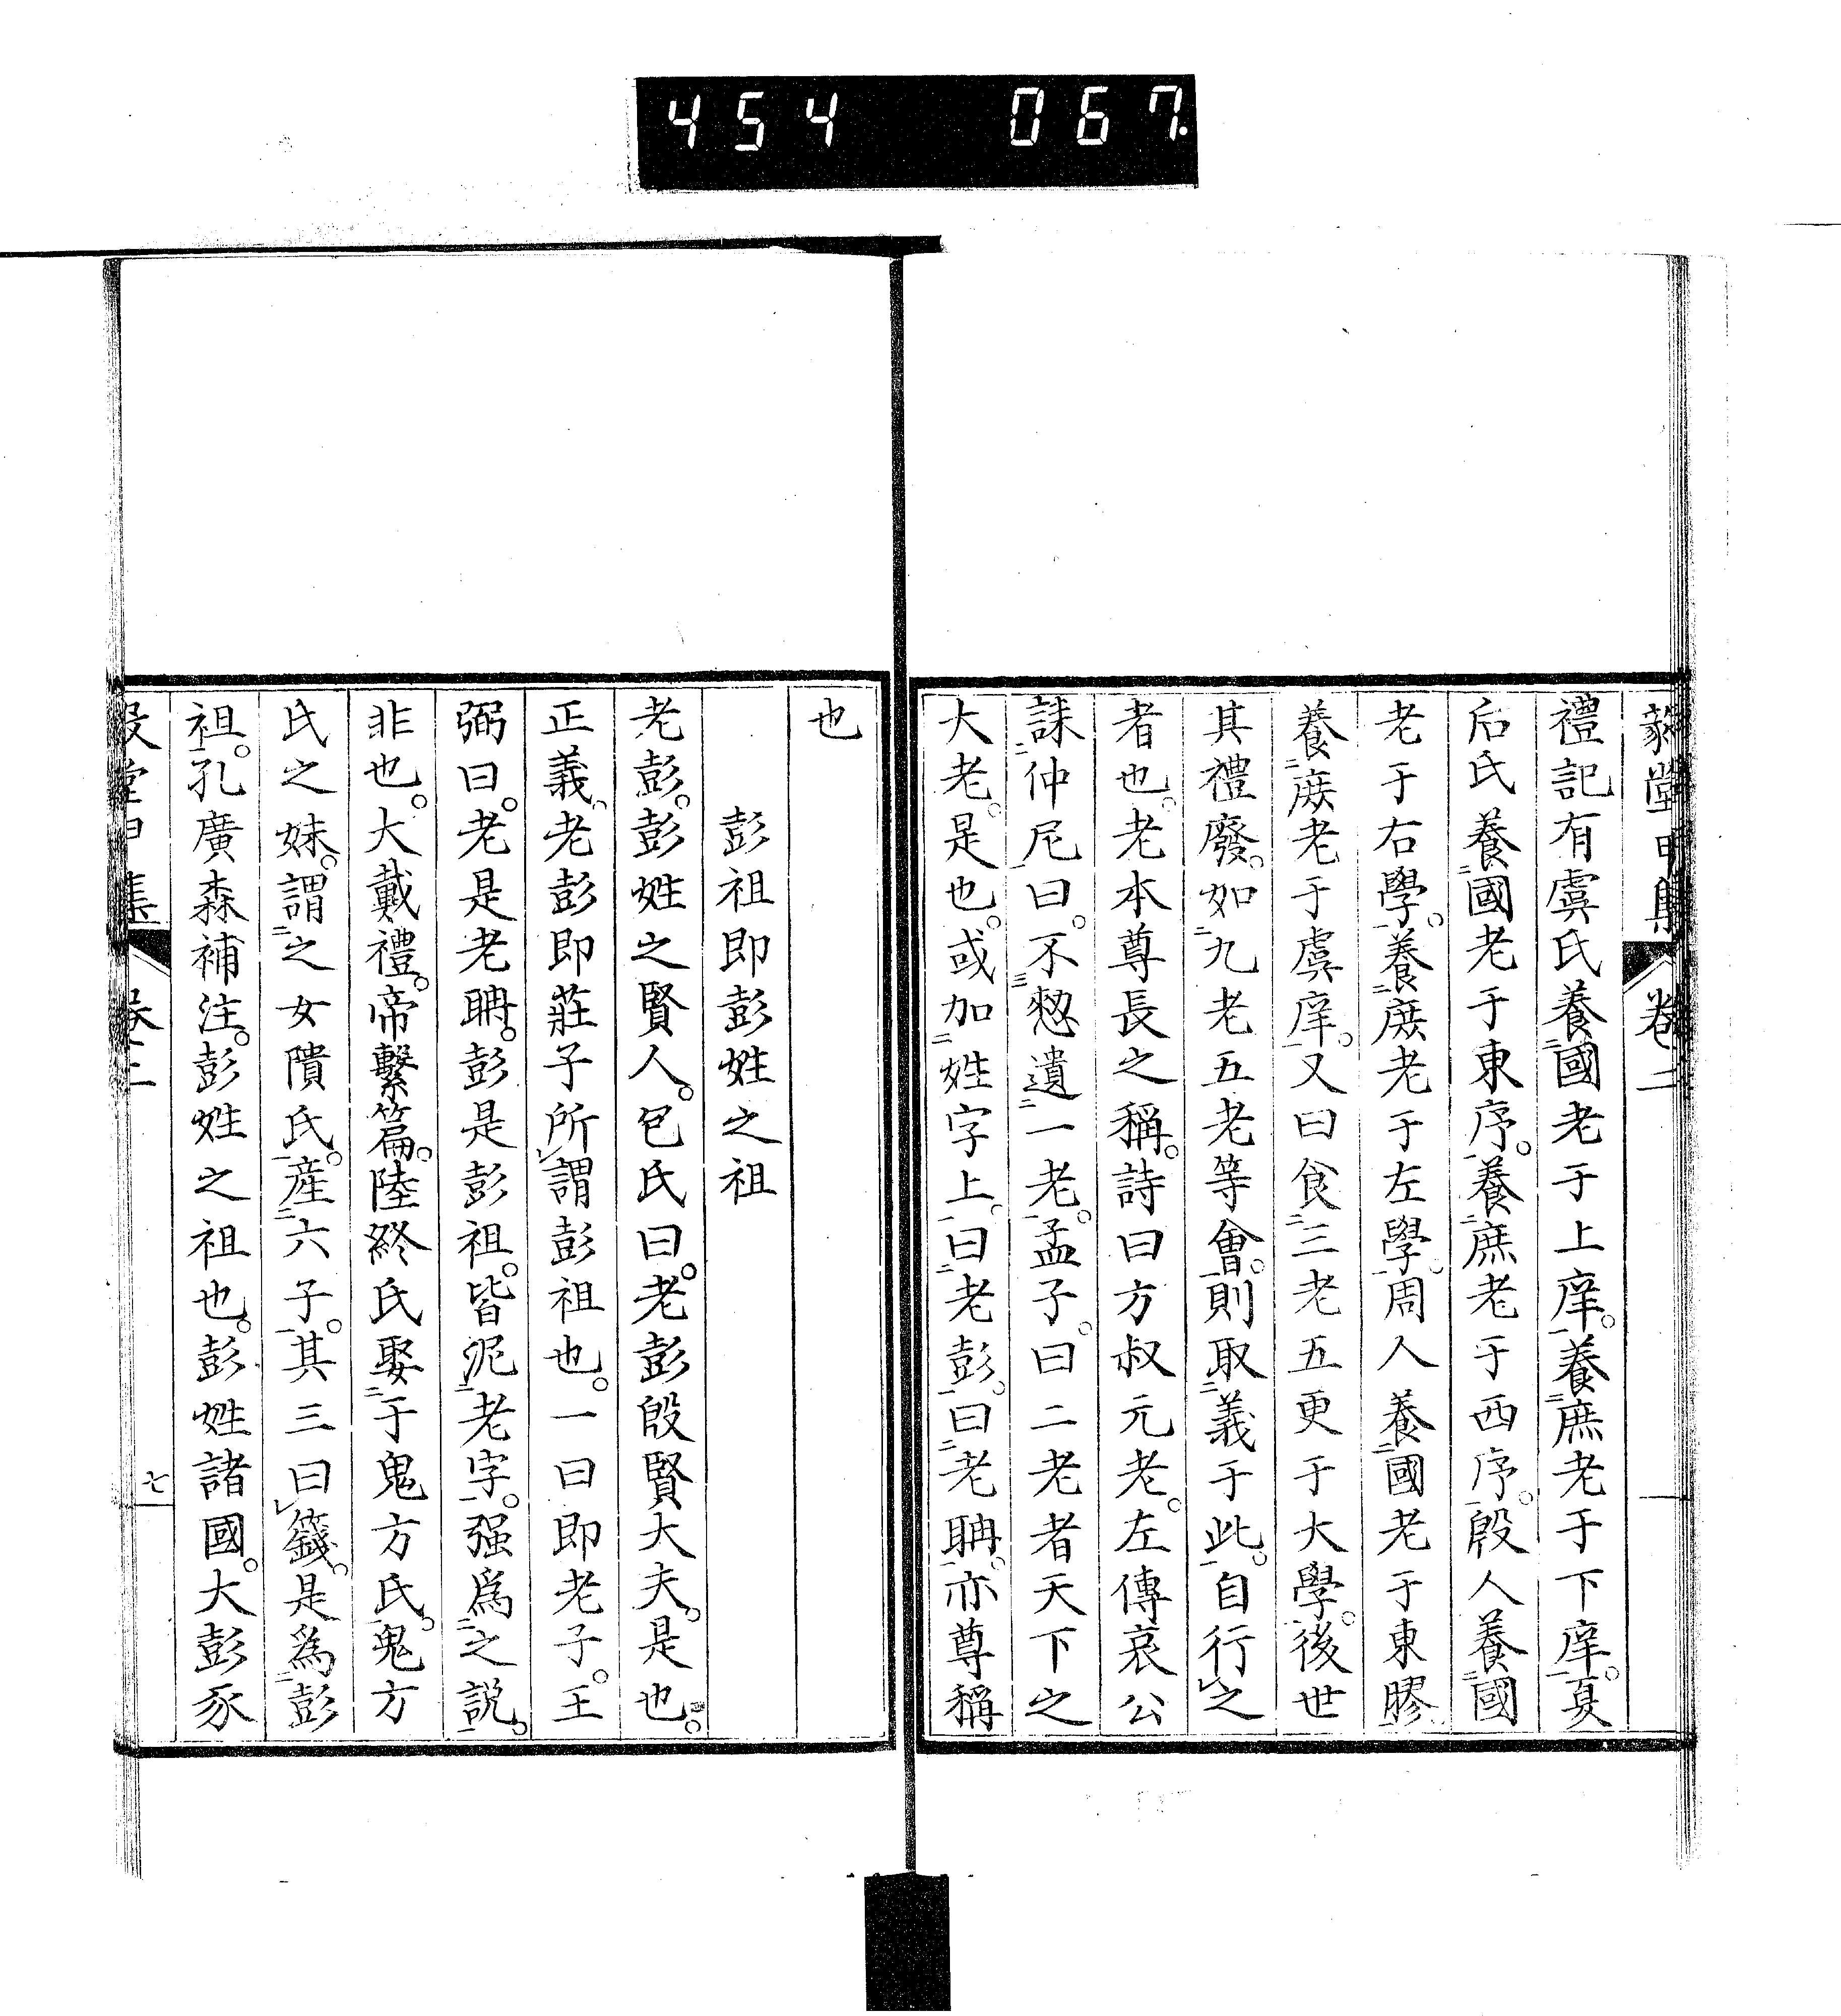 454 067
禮記有虞氏養㆓國老于上庠㆒。養㆓庶老于下庠㆒。夏
后氏養㆓國老于東序㆒。養㆓庶老于西序㆒。殷人養㆓國
老于右學㆒。養㆓庶老于左學㆒。周人養㆓國老于東膠㆒。
養㆓庶老于虞庠㆒。又曰食㆓三老五更于大學㆒。後世
其禮廢。如㆓九老五老等會㆒。則取㆓義于此㆒。自行㆑之
者也。老本尊長之稱。詩曰方叔元老。左傳哀公
誄㆓仲尼㆒曰。不㆔憖遺㆓一老㆒。孟子。曰二老者天下之
大老。是也。或加㆓姓字上㆒。曰㆓老彭㆒。曰㆓老聃㆒。亦尊稱
也
彭祖即彭姓之祖
老彭。彭姓之賢人。包氏曰。老彭殷賢大夫。是也。
正義。老彭即莊子所㆑謂彭祖也。一曰即老子。王
弼曰。老是老聃。彭是彭祖。皆泥㆓老字㆒。强爲㆓之說㆒。
非也。大戴禮。帝繫篇。陸終氏娶㆓于鬼方氏㆒。鬼方
氏之妹。謂㆓之女隤氏㆒。產㆓六子㆒。其三曰㆑籛。是爲㆓彭
祖㆒。孔廣森補注。彭姓之祖也。彭姓諸國。大彭豕
卷二
七